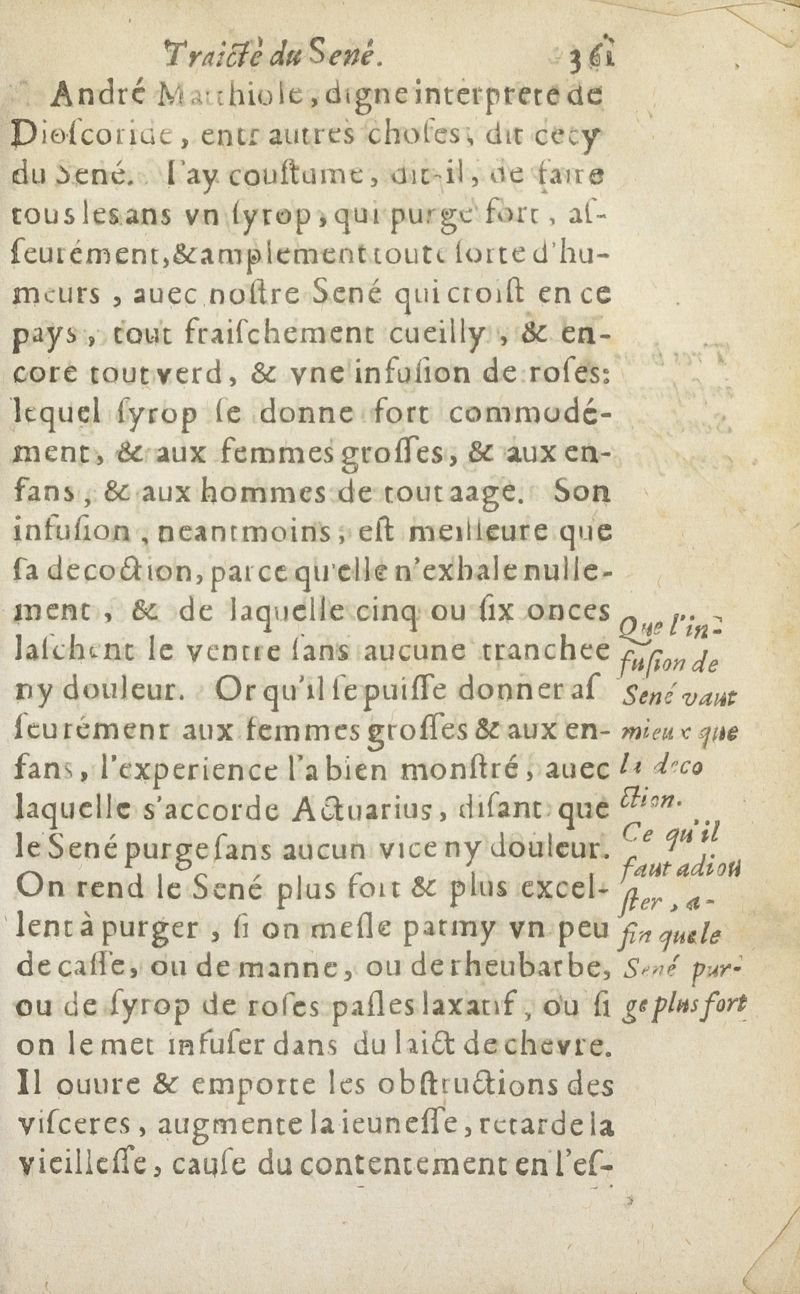 Traicté du Sené. 361
André Matthiole, digne interprete de
Dioſcoride, entr autres choſes, dit cecy
du Sené. I'ay couſtume, dit-il, de faire
tous les ans vn ſyrop, qui purge fort, aſ-
ſeurément, & amplement toute ſorte d'hu-
meurs, auec noſtre Sené qui croiſt en ce
pays, tout fraiſchement cueilly, & en-
core tout verd, & vne infuſion de roſes:
lequel ſyrop ſe donne fort commodé-
ment, & aux femmes groſſes, & aux en-
fans, & aux hommes de tout aage. Son
infuſion, neantmoins, eſt meilleure que
ſa decoction, parce qu'elle n'exhale nulle-
ment, & de laquelle cinq ou ſix onces
laſchent le ventre ſans aucune tranchee
ny douleur. Or qu'il ſe puiſſe donner aſ
ſeurément aux femmes groſſes & aux en-
fans, l'experience l'a bien monſtré, auec
laquelle s'accorde Actuarius, diſant que
le Sené purge ſans aucun vice ny douleur.
On rend le Sené plus fort & plus excel-
lent à purger, ſi on meſle parmy vn peu
de caſſe, ou de manne, ou de rheubarbe,
ou de ſyrop de roſes paſles laxatif, ou ſi
on le met infuſer dans du laict de chevre.
Il ouure & emporte les obſtructions des
viſceres, augmente la ieuneſſe, retarde la
vieilleſſe, cauſe du contentement en l'eſ-
Que l'in-
fuſion de
Sené vaut
mieux que
la deco
ction.
Ce qu'il
faut adiou
ſter, a-
fin que le
Sené pur-
ge plus fort